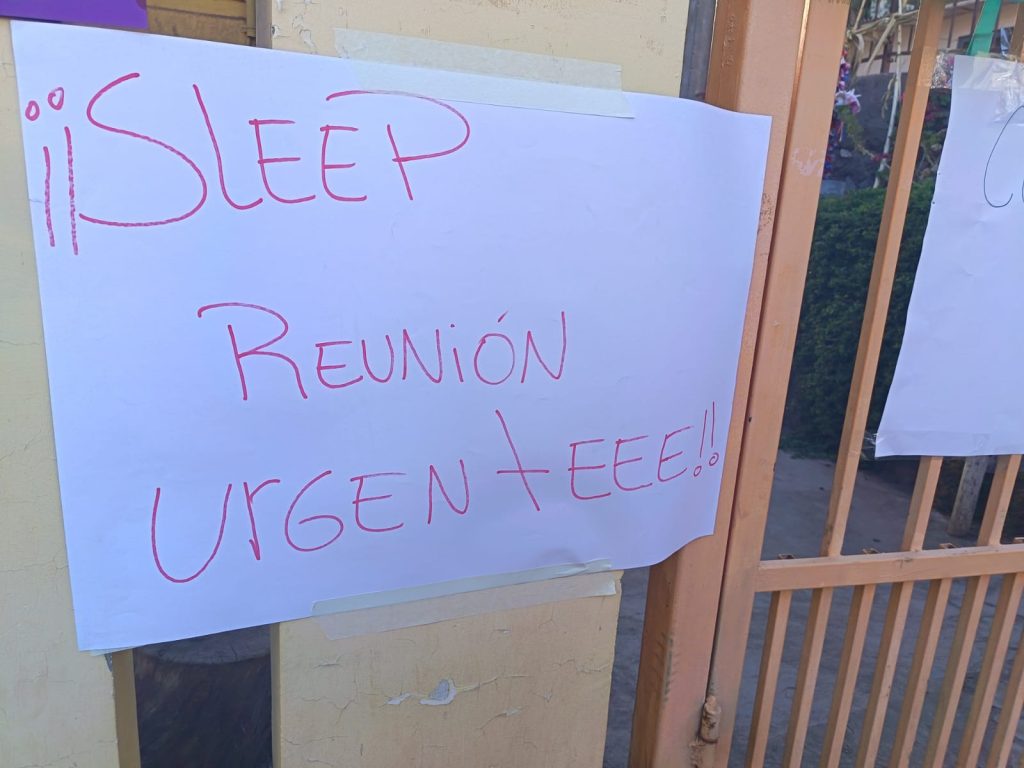 ¡¡SLEEP
REUNIÓN
URGENTEEE!!